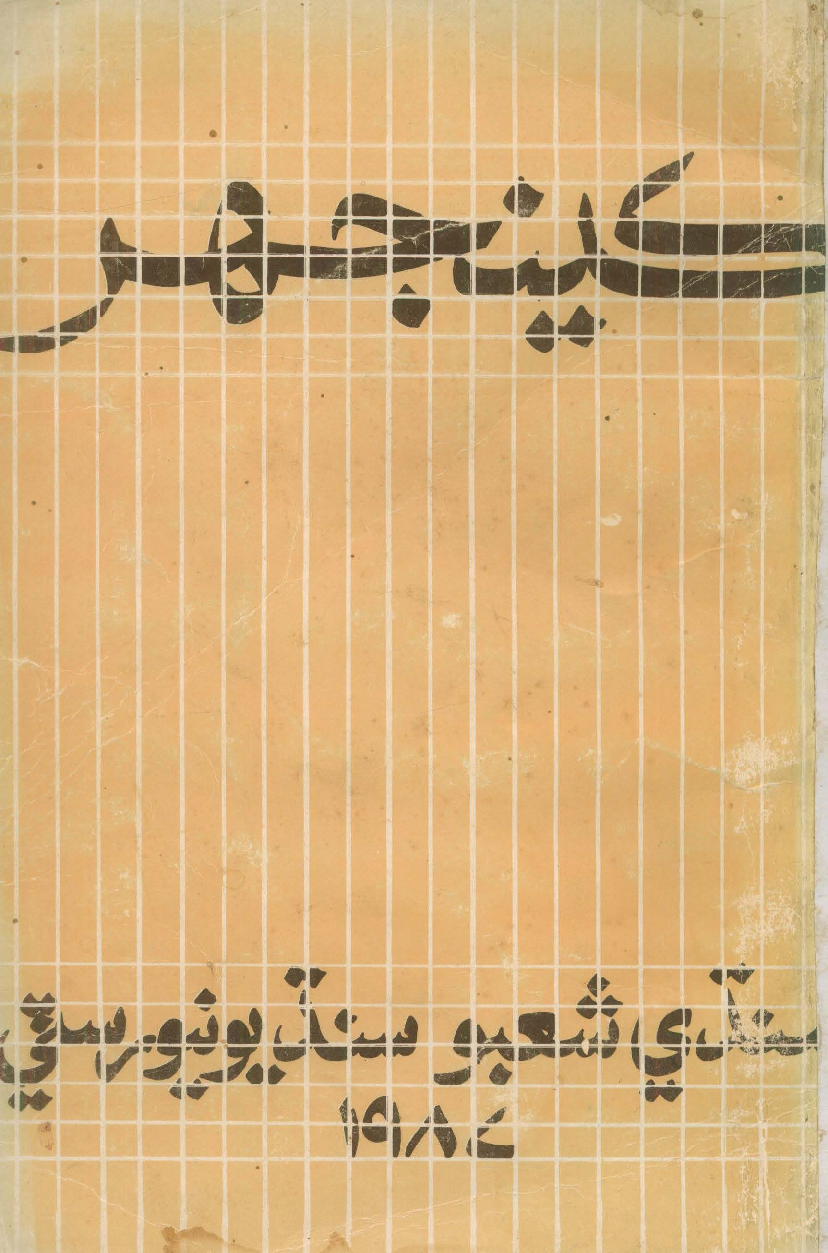 ڪينجهر
سنڌي شعبو سنڌ يونيورسٽي
١٩٨٤